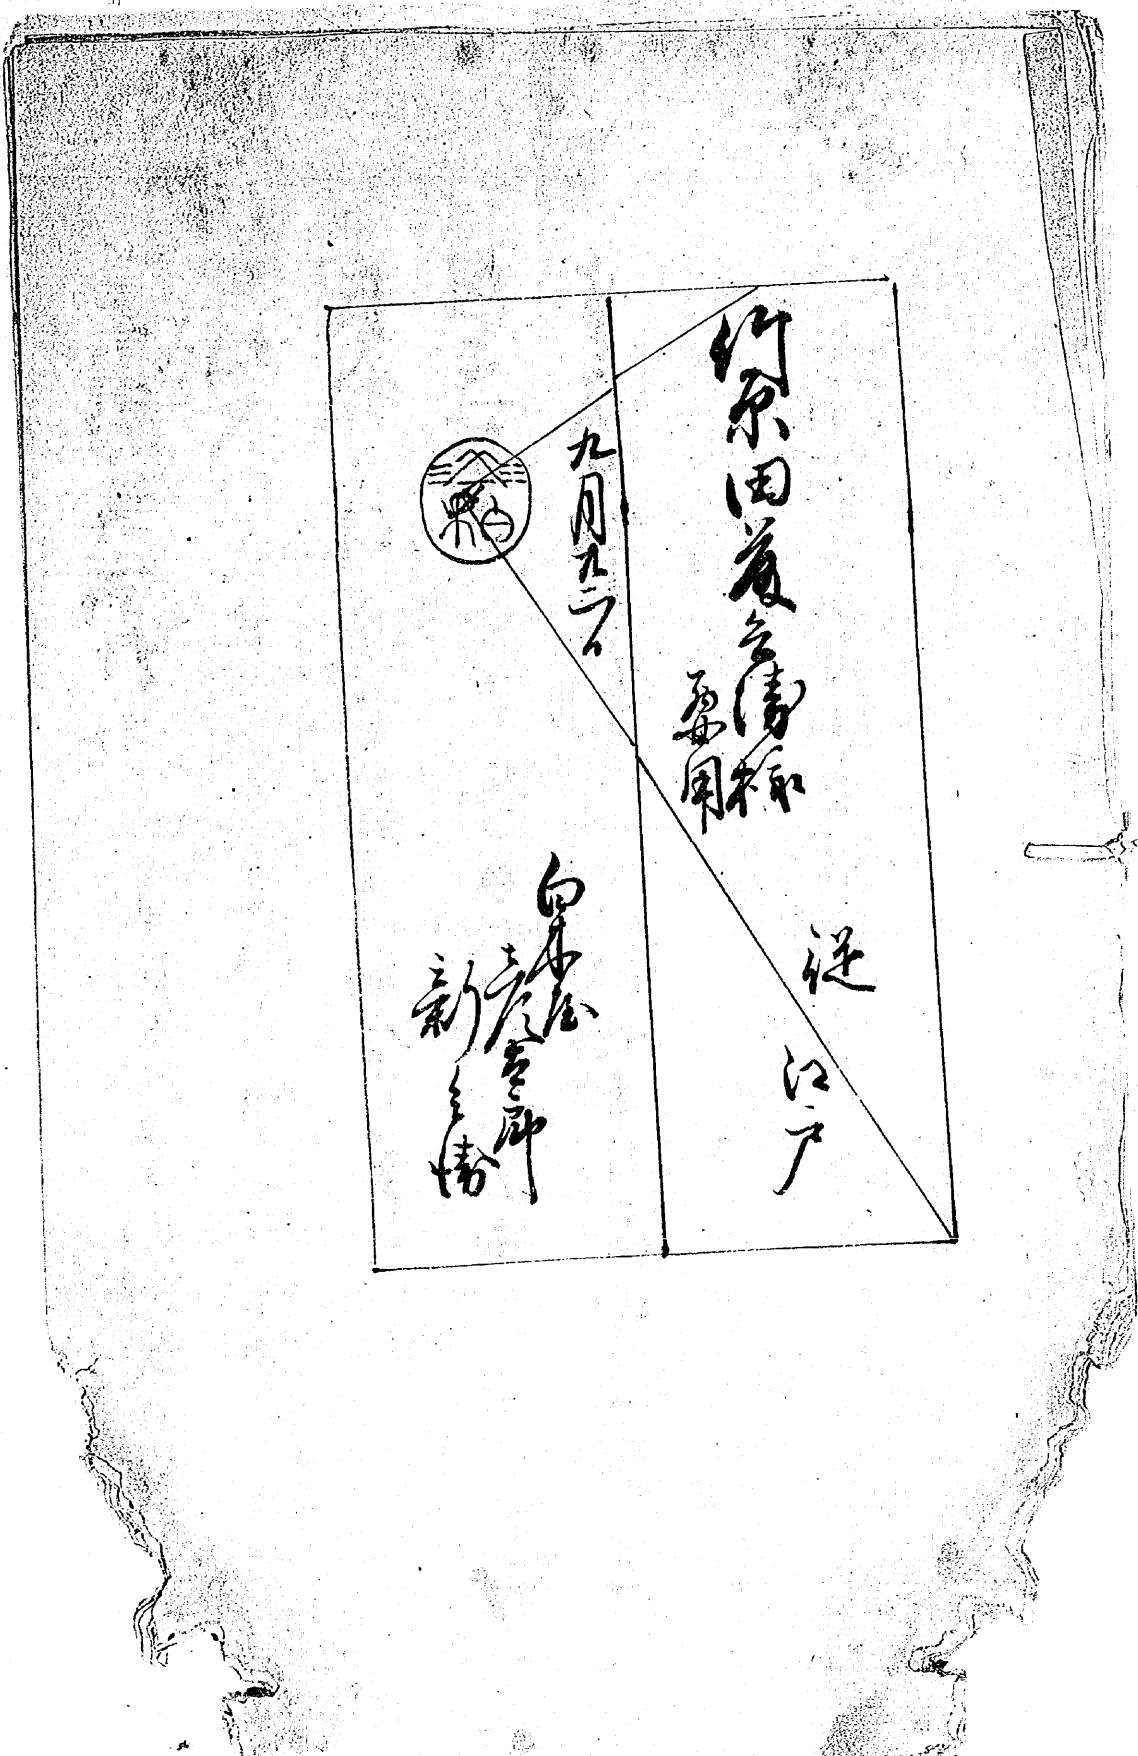 竹原田藤兵衛様
要用
従
江戸
九月九二日
白木屋
彦太郎
新兵衛